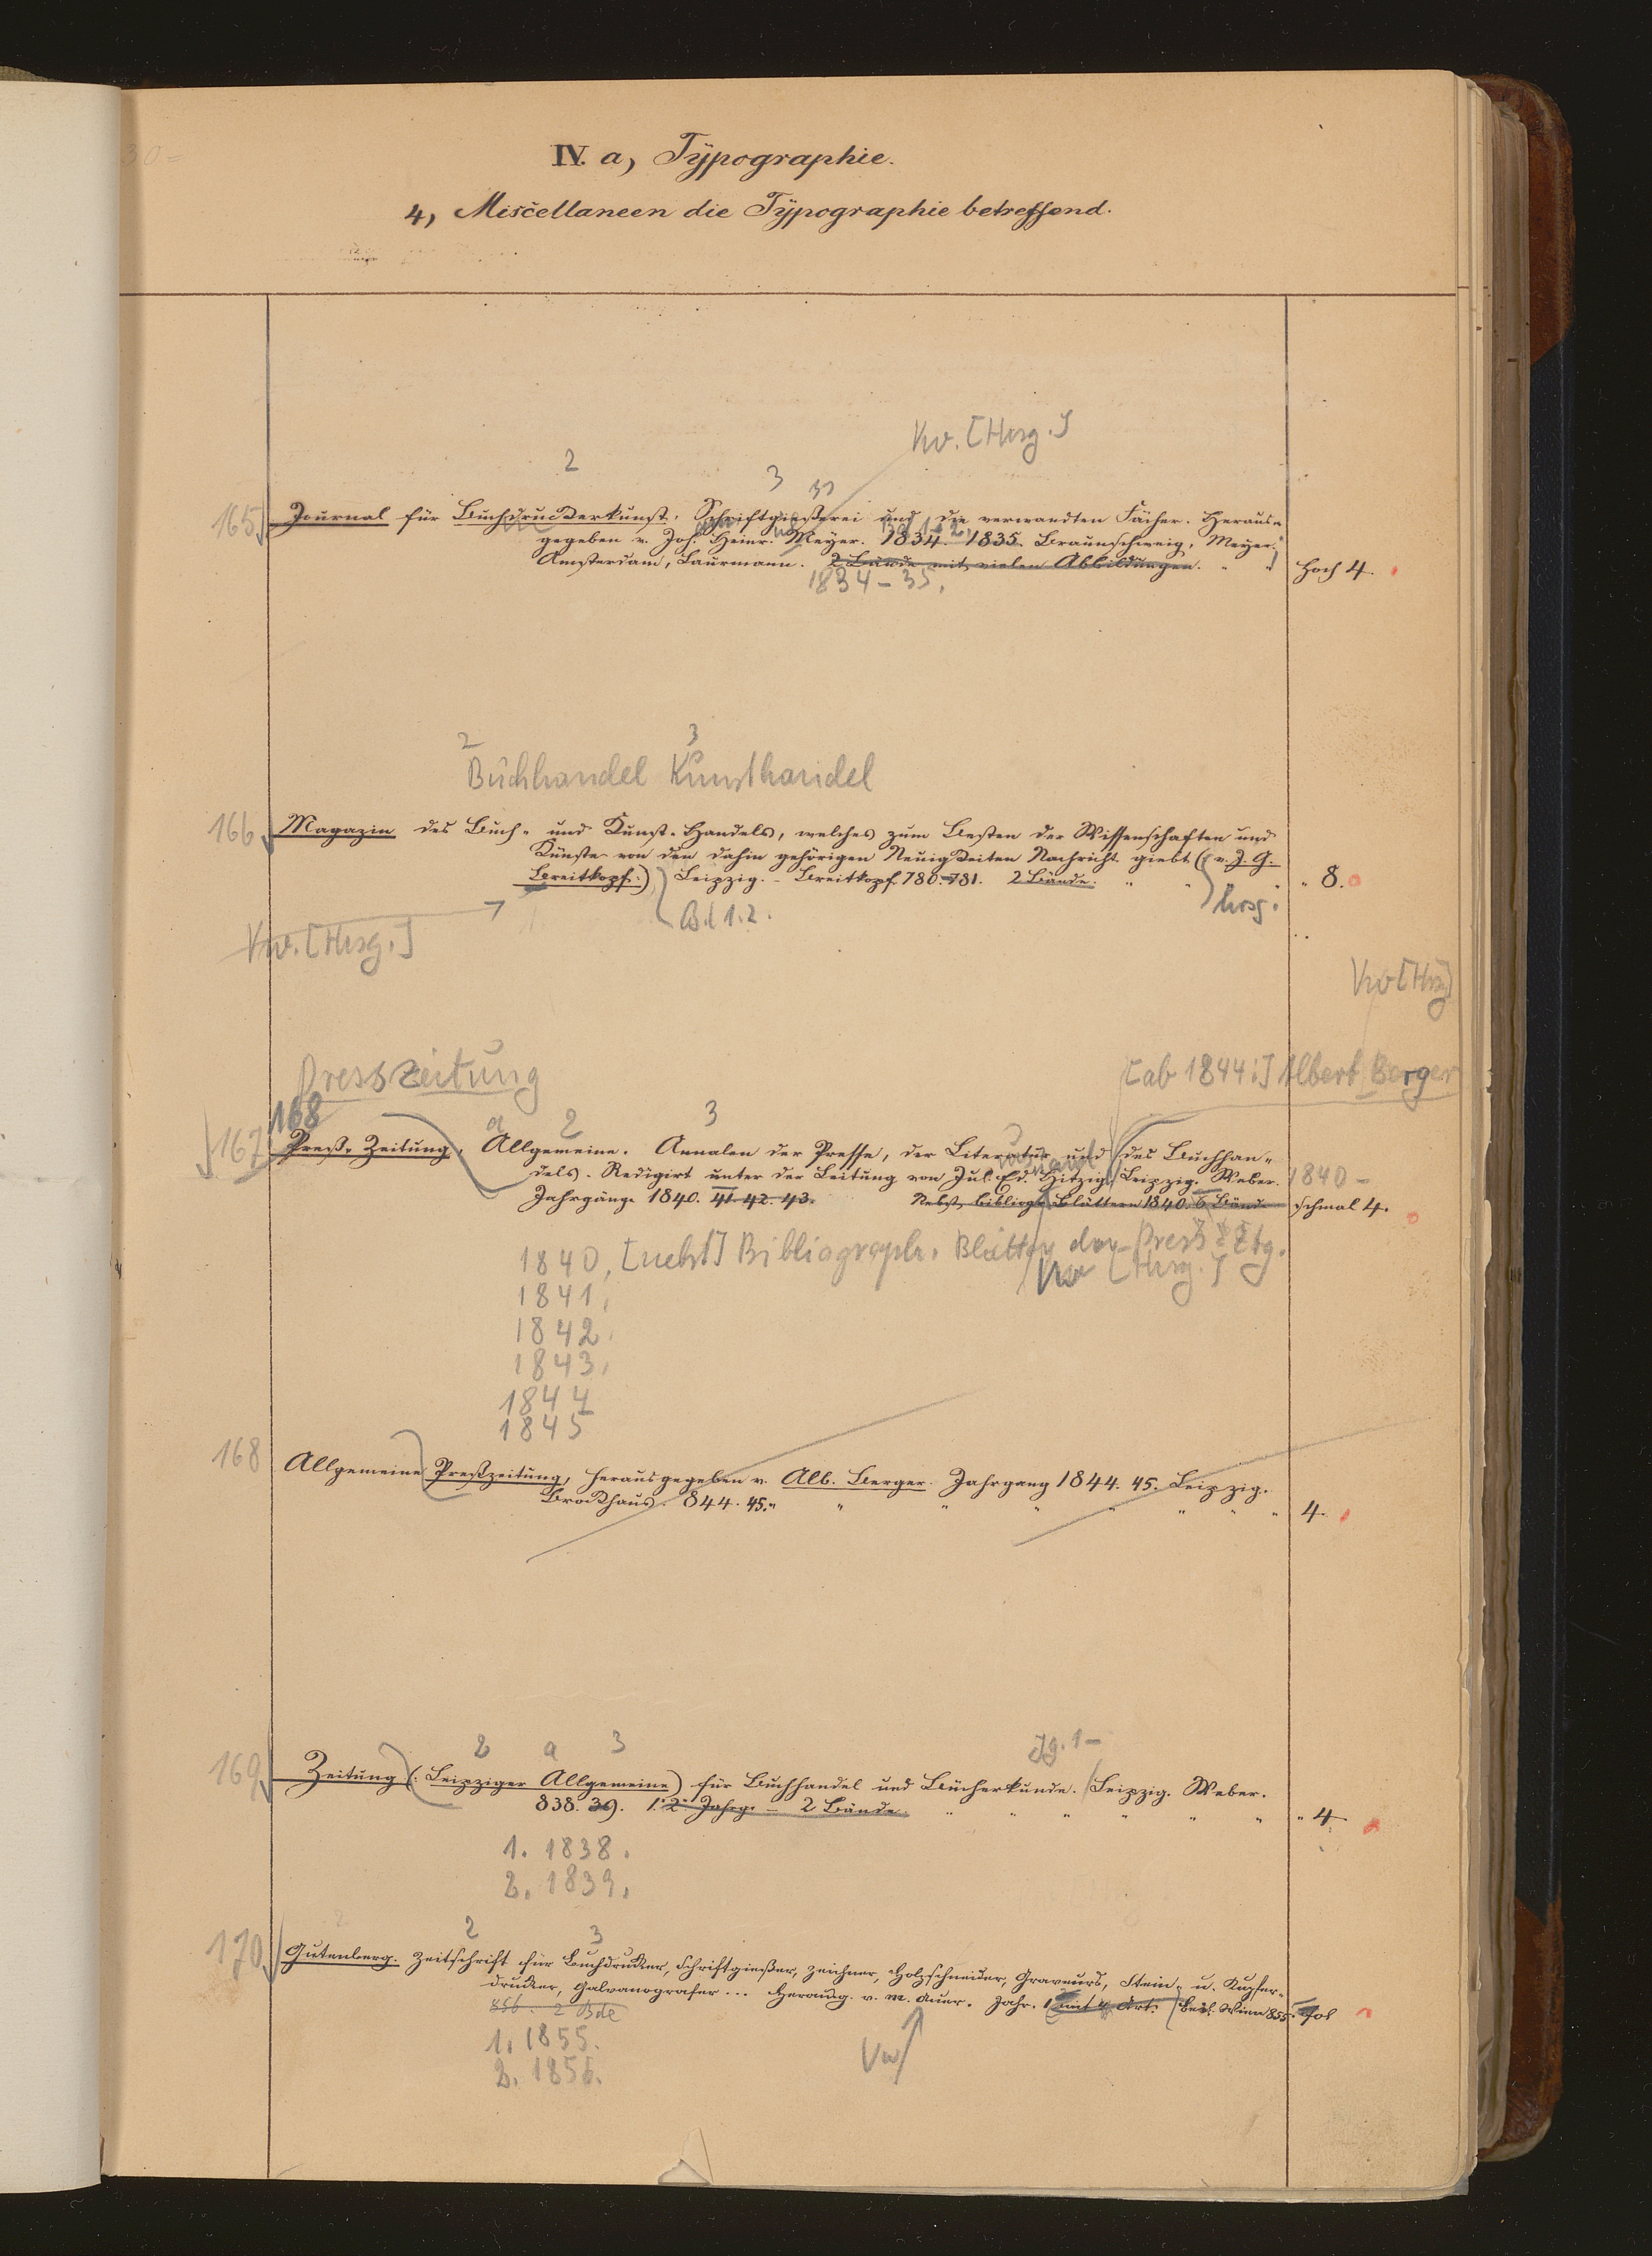 IV. a, Typographie.
4, Miscellaneen die Typographie betreffend.
Vw. [Hrsg.]
2 3
165 Journal für Buchdruckerkunst, Schriftgießerei und die verwandten Fächer. Heraus=
gegeben v. Joh. Heinr. Meyer. 1834. 1835. Braunschweig, Meyer.
Amsterdam, Laurmann. 2 Bände mit vielen Abbildungen. Hoch 4.
1834-35.
2 3
Buchhandel Kunsthandel
166 Magazin des Buch- und Kunst-Handels, welches zum Besten der Wissenschaften und
Künste von den dahin gehörigen Neuigkeiten Nachricht giebt (: v. J. G.
Breitkopf:) Leipzig. - Breitkopf. 780.-781. 2 Bände. " 8.
Bd 1.2. hrsg.
Vw. [Hrsg.]
Vw [Hrsg]
Presszeitung [ab 1844:] Albert Berger
168
a 2 3
167 Preß-Zeitung, Allgemeine. Annalen der Presse, der Literatur und des Buchhan=
dels. Redigirt unter der Leitung von Jul. Ed. Hitzig. Leipzig. Weber. 1840-
Jahrgänge 1840. 41. 42. 43. Nebst bibliogr. Blättern 1840. 6 Bände schmal 4.
1840, [nebst] Bibliograph. Blätter der Press-Ztg.
Vw [Hrsg.]
1841,
1842,
1843,
1844
1845
168 Allgemeine Preßzeitung, herausgegeben v. Alb. Berger. Jahrgang 1844. 45. Leipzig.
Brockhaus. 844. 45. " 4.
2 a 3 Jg. 1-
169 Zeitung (: Leipziger Allgemeine) für Buchhandel und Bücherkunde. Leipzig. Weber.
838. 39. 1. 2. Jahrg. - 2 Bände. " 4.
1. 1838.
2. 1839.
2 3
170 Gutenberg. Zeitschrift für Buchdrucker, Schriftgießer, Zeichner, Holzschneider, Graveurs, Stein- u. Kupfer-
drucker, Galvanografer ... Herausg. v. M. Auer. Jahr. 1 mit 4 Art. Beil. Wien 855. Fol
856. 2 Bde
1. 1855.
2. 1856.
Vw